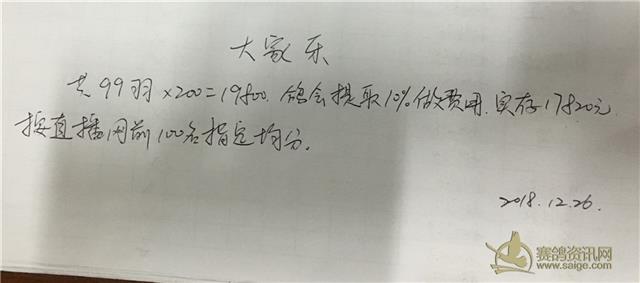 大家乐
共99羽×200=19800. 鸽会提取10%做费用. 实存17820元.
按直播网前100名指定均分.
2018.12.26.
赛鸽资讯网
www.saige.com